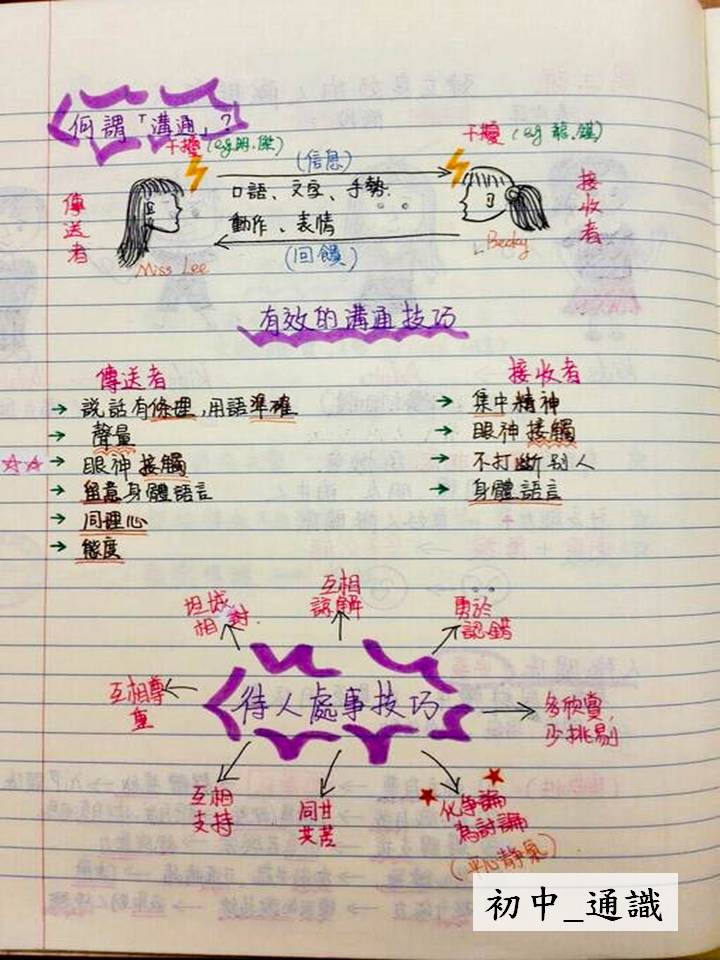 何謂「溝通」?
干擾
干擾
傳送者
(信息)
口語、文字、手勢、
動作、表情
(回饋)
接收者
Miss Lee
Becky
有效的溝通技巧
傳送者
→ 說話有條理,用語準確
→ 聲量
☆☆ → 眼神接觸
→ 留意身體語言
→ 同理心
→ 態度
接收者
→ 集中精神
→ 眼神接觸
→ 不打斷别人
→ 身體語言
待人處事技巧
坦城
相對
互相
諒解
勇於
認錯
互相尊
重
多欣賞,
少挑剔
互相
支持
同甘
共苦
化爭論
為討論
(平心靜氣)
初中_通識